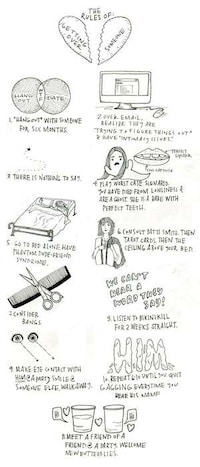 THE
RULES OF:
GETTING
OVER
SOMEONE
HANG
OUT
DATE
1. "HANG OUT" WITH SOMEONE
FOR SIX MONTHS.
2. OVER EMAIL,
REALIZE THEY ARE
"TRYING TO FIGURE THINGS OUT"
& HAVE "INTIMACY ISSUES."
3. THERE IS NOTHING TO SAY.
PERFECT
4. PLAY WORST CASE SCENARIO.
YOU HAVE DIED FROM LONELINESS &
ARE A GHOST. SHE IS A BABE WITH
PERFECT TEETH.
5. GO TO BED ALONE. HAVE
PHANTOM DUDE-FRIEND
SYNDROME.
6. CONSULT PATTI SMITH. THEN
TAROT CARDS. THEN THE
CEILING ABOVE YOUR BED.
7. CONSIDER
BANGS.
WE CAN'T
HEAR A
WORD THEY
SAY!
8. LISTEN TO BIKINI KILL
FOR 2 WEEKS STRAIGHT.
9. MAKE EYE CONTACT WITH
HIM @ A PARTY. SMILE @
SOMEONE ELSE. WALK AWAY.
HIM
10. REPEAT 8 UNTIL YOU QUIT
GAGGING EVERYTIME YOU
HEAR HIS NAME!
11. MEET A FRIEND OF A
FRIEND @ A PARTY. WELCOME
NEW BUTTERFLIES.